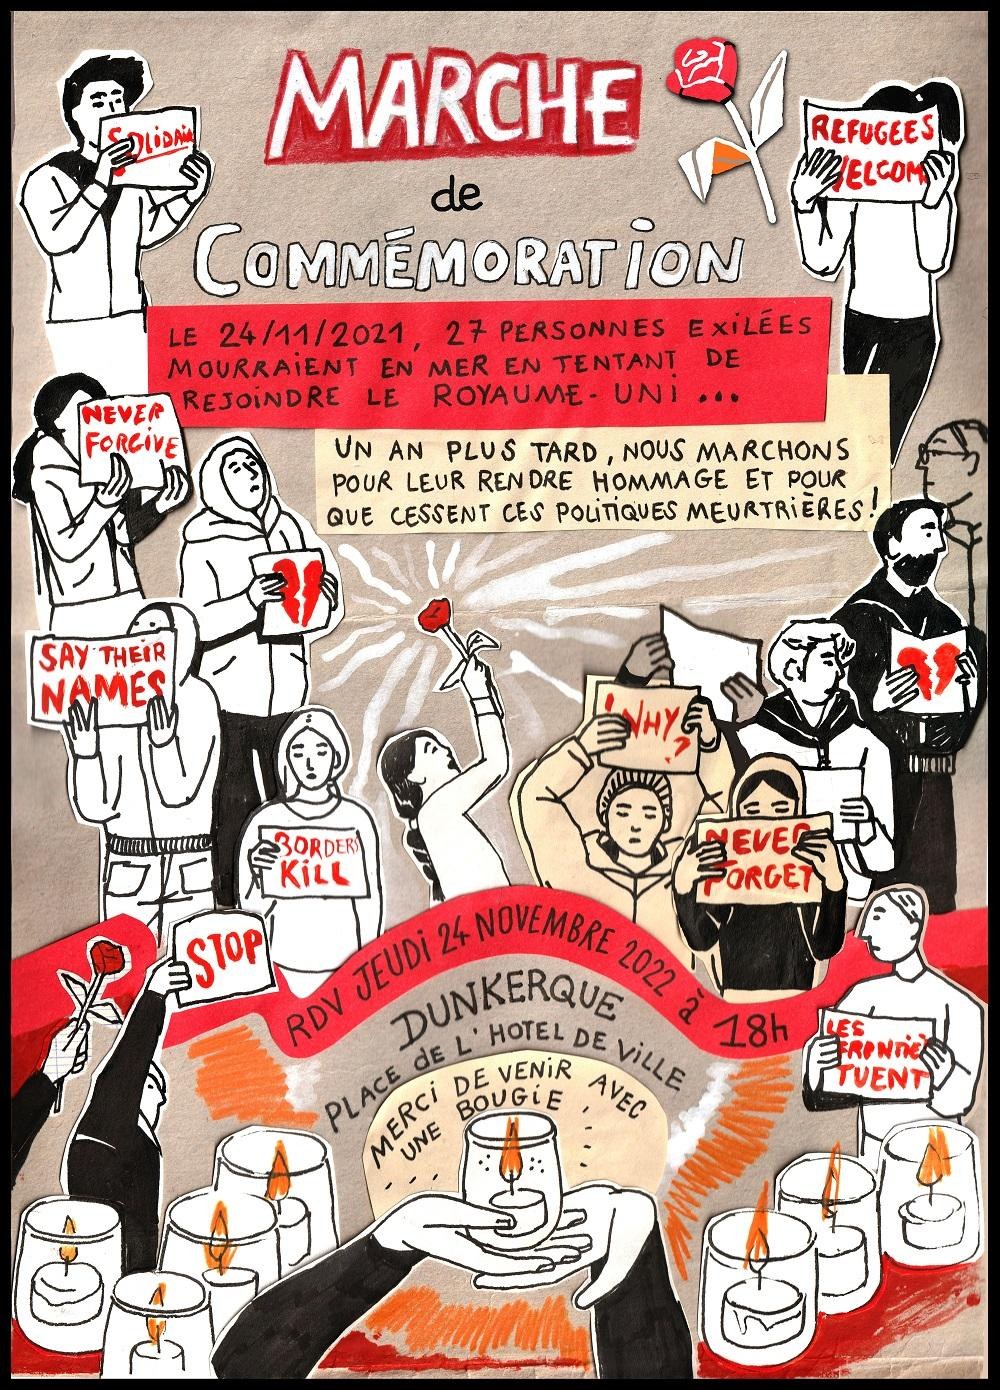 MARCHE
de
COMMÉMORATION
REFUGEES
WELCOM
LE 24/11/2021, 27 PERSONNES EXILÉES
MOURRAIENT EN MER EN TENTANT DE
REJOINDRE LE ROYAUME-UNI ...
UN AN PLUS TARD, NOUS MARCHONS
POUR LEUR RENDRE HOMMAGE ET POUR
QUE CESSENT CES POLITIQUES MEURTRIÈRES!
NEVER
FORGIVE
SAY THEIR
NAMES
BORDERS
KILL
WHY?
NEVER
FORGET
STOP
RDV JEUDI 24 NOVEMBRE 2022 à 18h
DUNKERQUE
PLACE de L'HOTEL DE VILLE
MERCI DE VENIR AVEC
UNE BOUGIE
LES
FRONTIÈ
TUENT